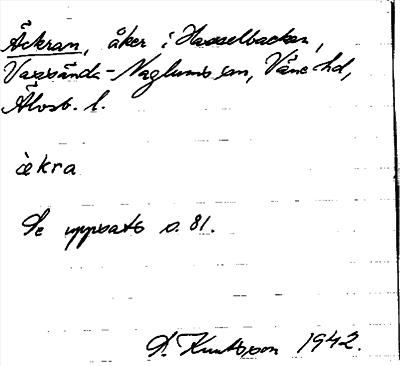 Äckran, åker i Hasselbacken,
Vassända-Naglums sn, Väne hd,
Älvsb. l.
àkra
Se uppsats s. 81.
S. Knutsson 1942.